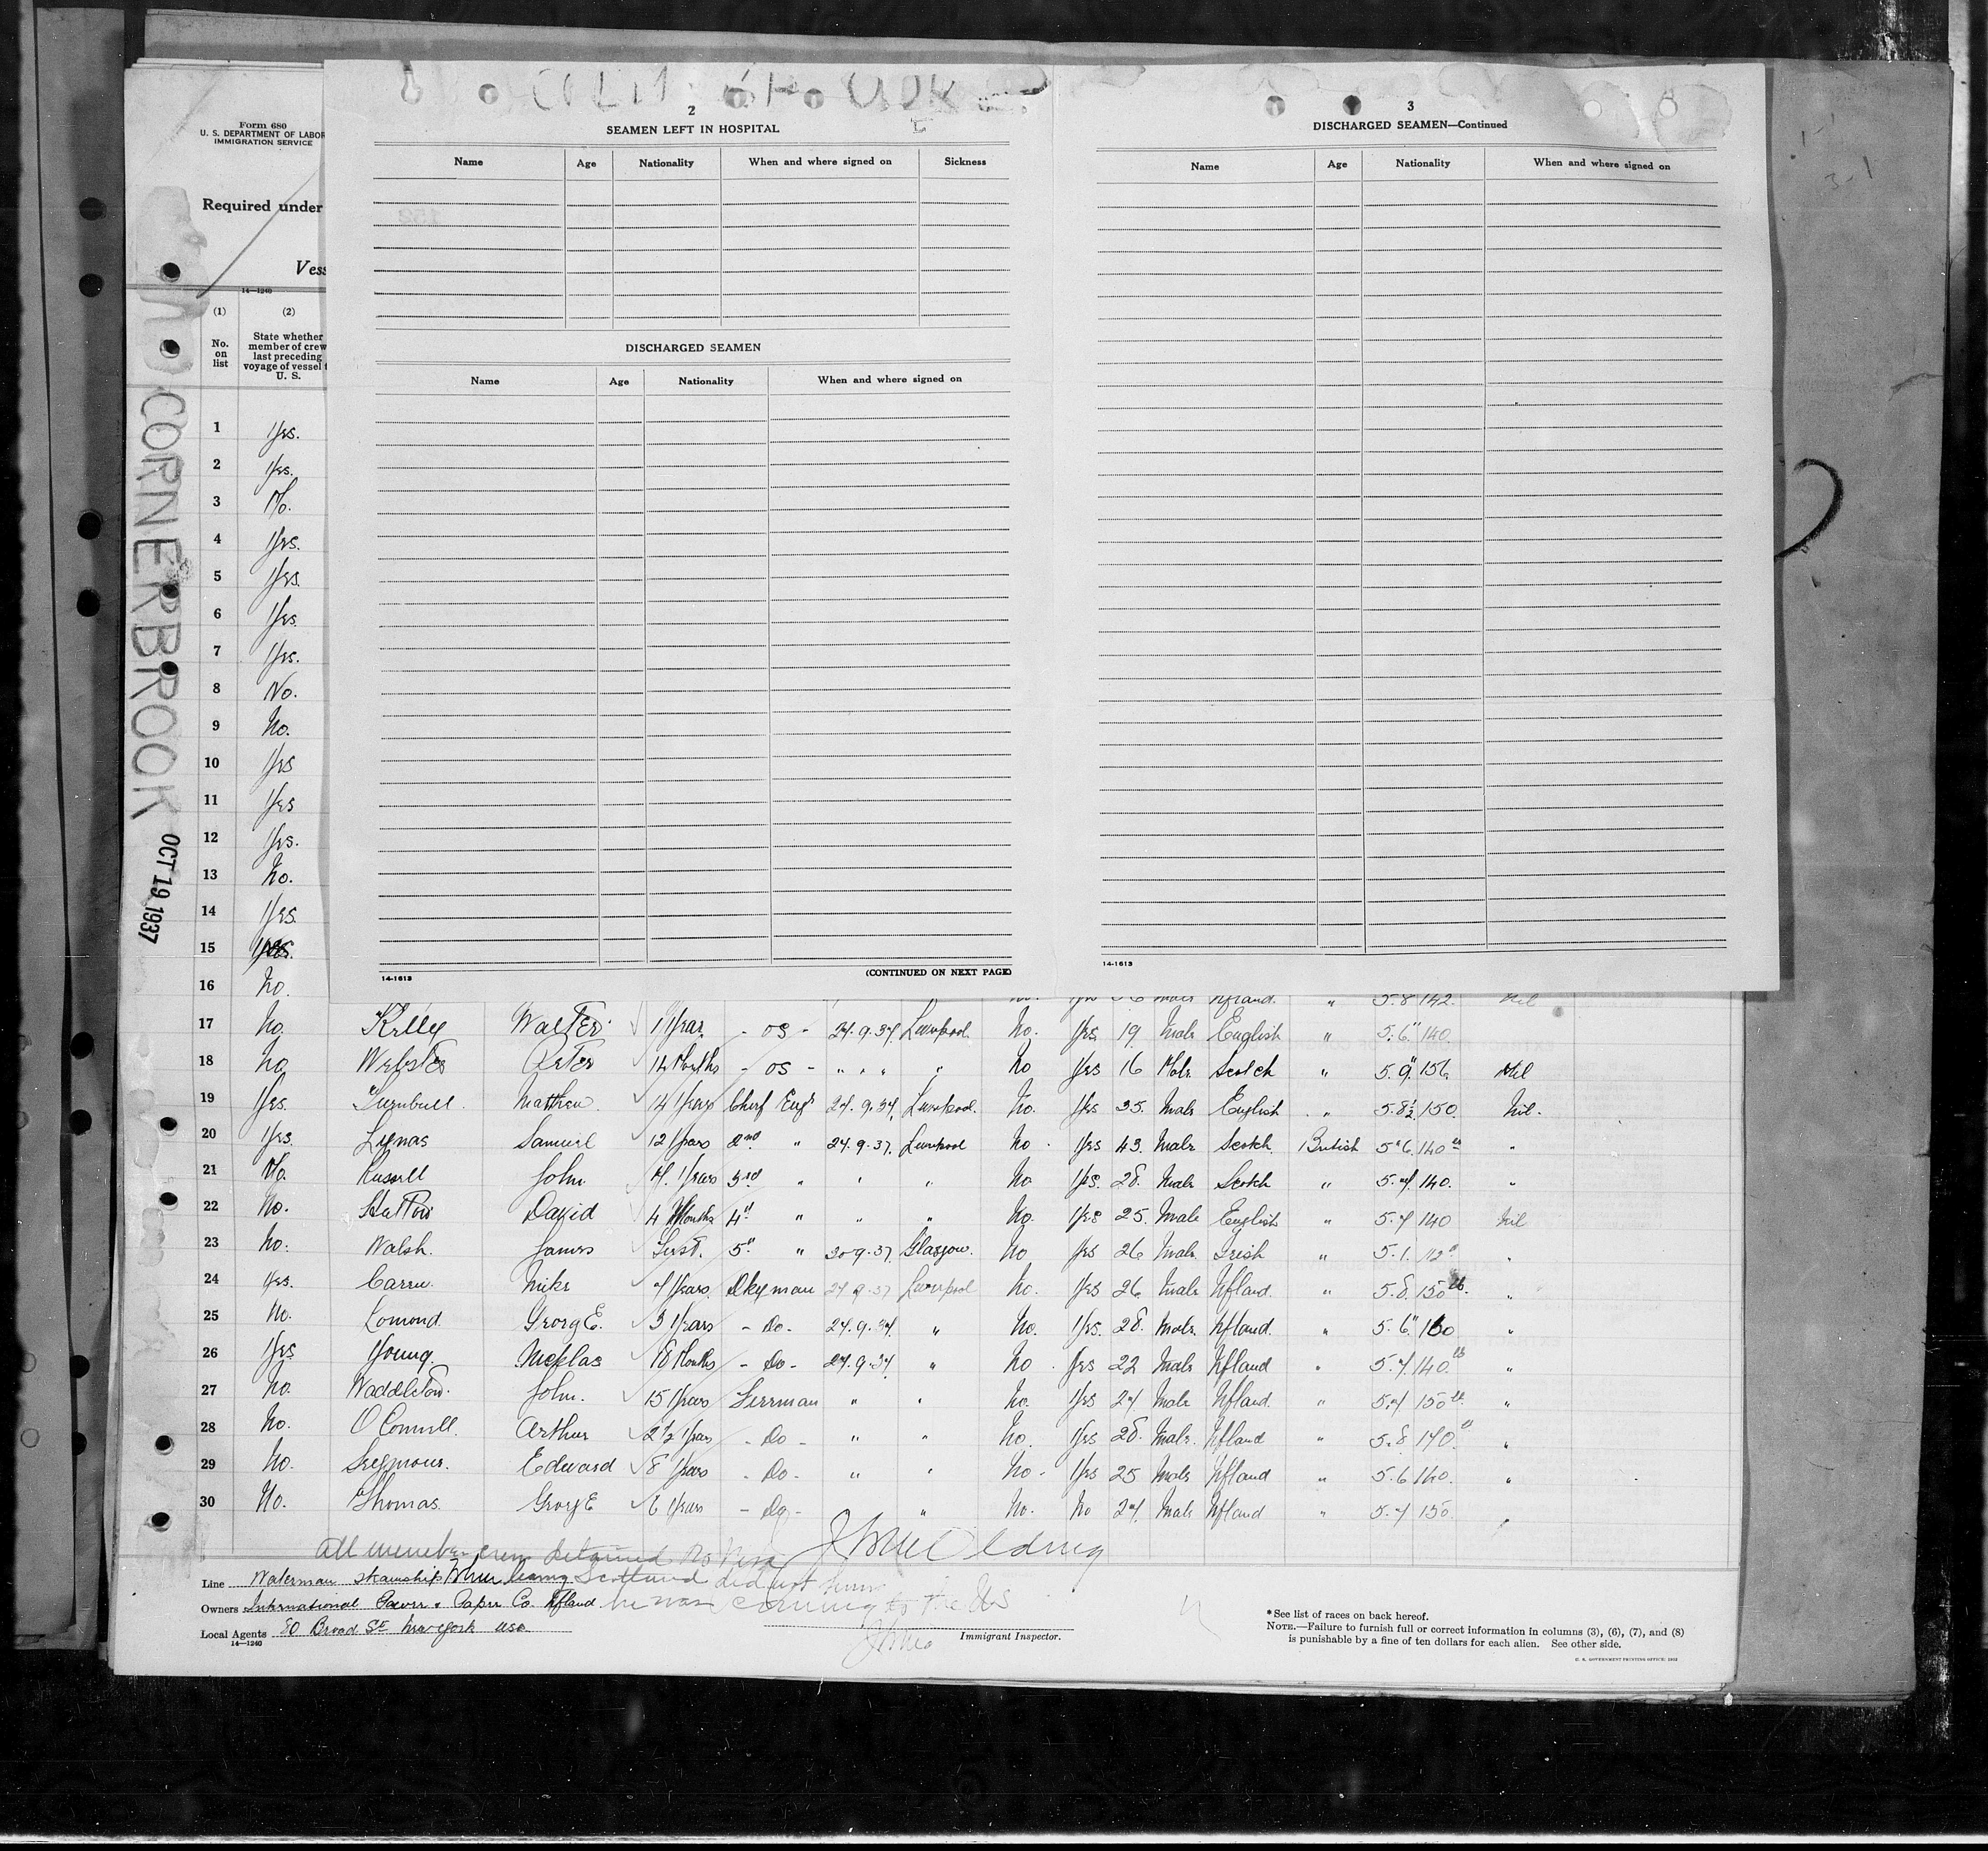 2
SEAMEN LEFT IN HOSPITAL
Name Age Nationality When and where signed on Sickness
DISCHARGED SEAMEN
Name Age Nationality When and where signed on
14-1613 (CONTINUED ON NEXT PAGE)
3
DISCHARGED SEAMEN—Continued
Name Age Nationality When and where signed on
14-1613
Form 680
U. S. DEPARTMENT OF LABOR
IMMIGRATION SERVICE
Required under
Vess
14—1240
(1) (2)
No. on list
State whether member of crew last preceding voyage of vessel U. S.
CORNERBROOK
OCT 19 1937
1 Yes.
2 Yes.
3 No.
4 Yes.
5 Yes
6 Yes.
7 Yes.
8 No.
9 No.
10 Yes
11 Yes
12 Yes.
13 No.
14 Yes.
15 Yes.
16 No. Male Nfland. " 5.8 142. Nil
17 No. Kelly Walter 1 Year - OS - 24.9.37 Liverpool. No. Yes 19 Male English " 5.6" 140.
18 No Webster Peter 14 Months - OS - " " " " No Yes 16 Male Scotch " 5.9" 156 Nil
19 Yes. Turnbull Matthew 14 Years Chief Engr 24.9.37. Liverpool. No. Yes 35. Male English " 5.8½ 150 Nil.
20 Yes. Lynas Samuel 12 Years 2nd " 24.9.37. Liverpool No. Yes 43. Male Scotch. British 5.6. 140 "
21 No. Russell John Years 3rd " " " No Yes. 28. Male Scotch " 5.7. 140. "
22 No. Hutton David 4 Months 4" " " " No. Yes 25. Male English " 5.7 140 Nil
23 No. Walsh. James First. 5" " 30-9-37. Glasgow. No Yes 26 Male Irish " 5.1. "
24 Yes. Carew. Mike 7 Years. Dkeyman 24.9.37 Liverpool No. Yes 26 Male Nfland. " 5.8. 150 lb. "
25 No. Lomond. George. 3 Years - Do - 24.9.37. " No. Yes. 28. Male. Nfland. " 5.6" 160 "
26 Yes Young. Nicklas 18 Months - Do - 24.9.37. " No. Yes 22 Male Nfland " 5.7. 140 lb "
27 No. Waddleton. John. 15 Years Fireman " " No. Yes 27 Male Nfland. " 5.7 150 lb. "
28 No. O Connell. Arthur 2½ Years - Do - " " No. Yes 28. Male. Nfland " 5.8. 170. "
29 No. Seymour. Edward 8 Years - Do - " " No. Yes 25 Male Nfland " 5.6 140. "
30 No. Thomas. George 6 Years - Do - " No. No 27. Male Nfland " 5.7 150. "
All member crew detained No Visa
Line Waterman Steamship When leaving Scotland did not know
Owners International Power & Paper Co. Nfland. he was coming to the US
Local Agents 80 Broad St New York USA
14—1240
Immigrant Inspector.
* See list of races on back hereof.
NOTE.—Failure to furnish full or correct information in columns (3), (6), (7), and (8)
is punishable by a fine of ten dollars for each alien. See other side.
U. S. GOVERNMENT PRINTING OFFICE: